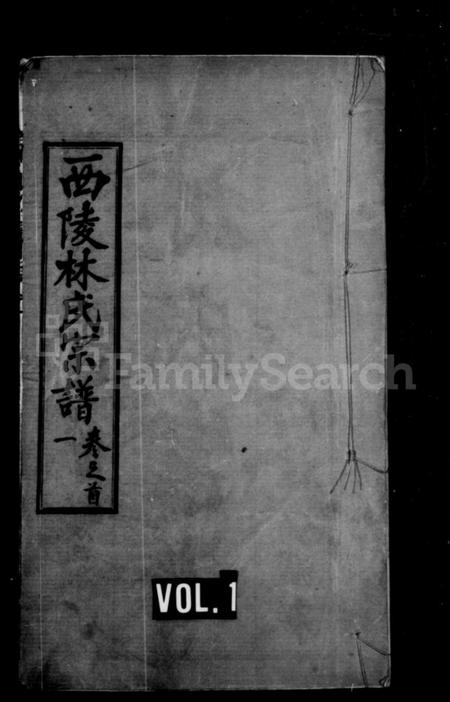 西陵林氏宗譜
卷之首
一
FamilySearch
VOL. 1